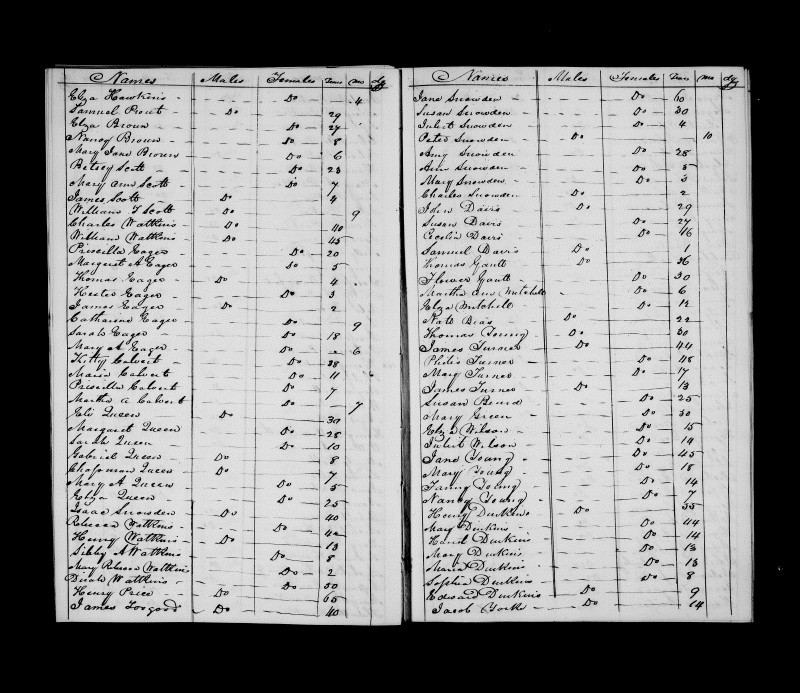 Names Males Females Years Mo dys
Eliza Hawkins Do 4
Samuel Prout Do 29
Eliza Brown Do 27
Nancy Brown Do 8
Mary Jane Brown Do 6
Betsey Scott Do 23
Mary Ann Scott Do 7
James Scott Do 4
William T Scott Do 9
Charles Watkins Do 40
William Watkins Do 45
Priscilla Eager Do 20
Margaret A Eager Do 5
Thomas Eager Do 4
Hester Eager Do 3
James Eager Do 2
Catharine Eager Do 9
Sarah Eager Do 18
Mary A Eager Do 6
Kitty Calvert Do 38
Maria Calvert Do 11
Priscilla Calvert Do 7
Martha A Calvert Do 7
Eli Queen Do 30
Margaret Queen Do 28
Sarah Queen Do 10
Gabriel Queen Do 8
Chapman Queen Do 7
Mary A Queen Do 5
Eliza Queen Do 25
Isaac Snowden Do 40
Rebecca Watkins Do 42
Henry Watkins Do 13
Sibby A Watkins Do 8
Mary Rebecca Watkins Do 2
Dinah Watkins Do 50
Henry Price Do 65
James Toogood Do 40
Names Males Females Years Mo dys
Jane Snowden Do 60
Susan Snowden Do 30
Juliet Snowden Do 4
Peter Snowden Do 10
Amy Snowden Do 28
Ann Snowden Do 5
Mary Snowden Do 3
Charles Snowden Do 2
John Davis Do 29
Susan Davis Do 27
Cecelia Davis Do 16
Samuel Davis Do 1
Thomas Gantt Do 36
Flower Gantt Do 30
Martha Ann Mitchell Do 6
Eliza Mitchell Do 12
Nate Bias Do 22
Thomas Young Do 30
James Turner Do 44
Philis Turner Do 48
Mary Turner Do 17
James Turner Do 13
Susan Beard Do 25
Mary Green Do 30
Eliza Wilson Do 15
Juliet Wilson Do 14
Jane Young Do 45
Mary Young Do 18
Fanny Young Do 14
Nancy Young Do 7
Henry Dunkins Do 55
Mary Dunkins Do 44
Dunkins Do 14
Mary Dunkins Do 13
Maria Dunkins Do 13
Sophia Dunkins Do 8
Edward Dunkins Do 9
Jacob York Do 14